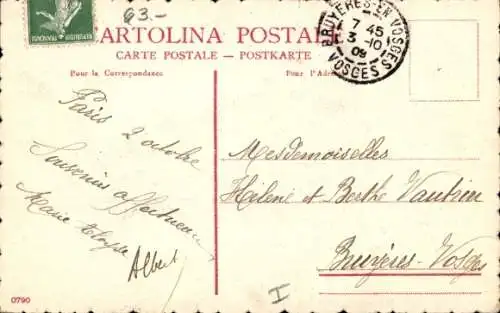 63.-
CARTOLINA POSTALE
CARTE POSTALE — POSTKARTE
Pour la Correspondance
Pour l'Adre
BRUYÈRES-EN-VOSGES
7 45
3 -10
09
VOSGES
Paris 2 octobre
Souvenirs affectueux
Marie
Albert
Mesdemoiselles
Hélène et Berthe Vautrin
Bruyères-Vosges
I
0790